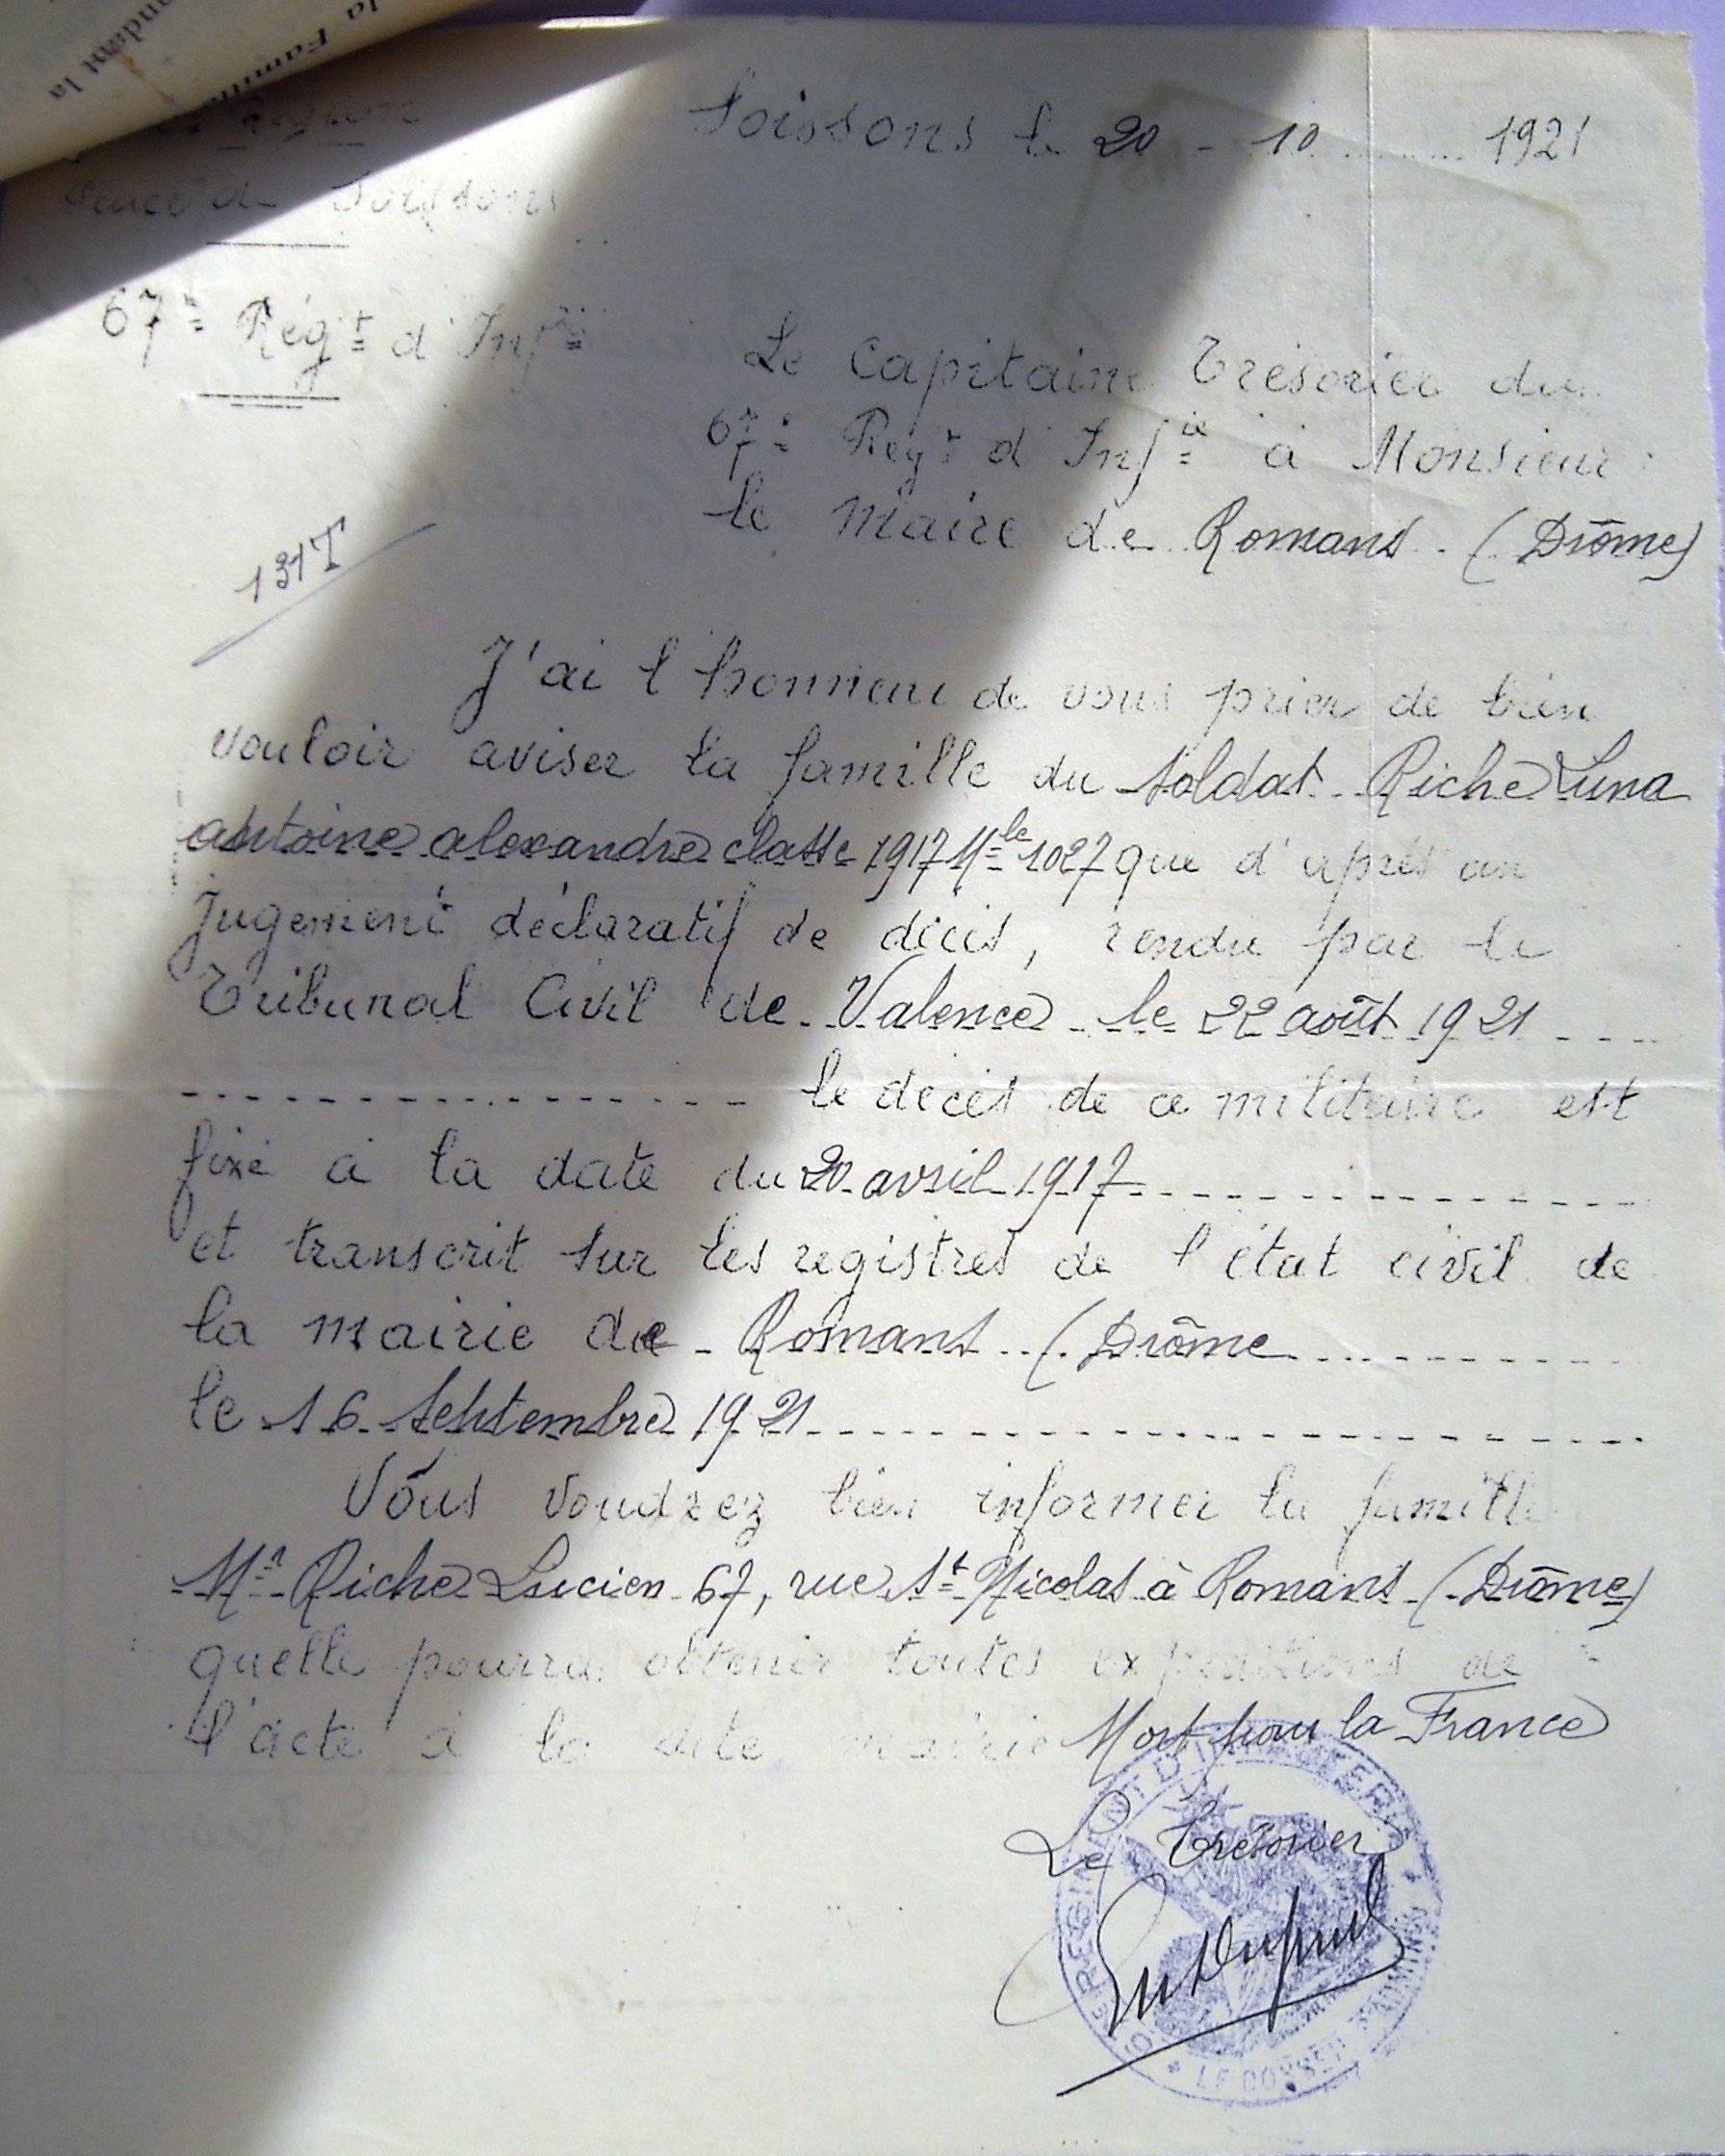 la Famille
ndant la
Région
Soissons le 20 - 10 1921
de Soissons
67e Régt d'Infie
Le Capitaine Trésorier du
67e Régt d'Infie à Monsieur
le Maire de Romans (Drôme)
131T
J'ai l'honneur de vous prier de bien
vouloir aviser la famille du soldat Riche Luna
antoine alexandre classe 1917 Mle 1027 que d'après un
Jugement déclaratif de décès, rendu par le
Tribunal Civil de Valence le 22 août 1921
le décès de ce militaire est
fixé à la date du 20 avril 1917
et transcrit sur les registres de l'état civil de
la mairie de Romans (Drôme
le 16 Septembre 1921
Vous voudrez bien informer la famille
Mr Riche Lucien 67, rue St Nicolas à Romans (Drôme)
quelle pourra obtenir toutes expéditions de
l'acte à la dite mairie Mort pour la France
Le Trésorier
REGIMENT D'INFANTERIE
LE CONSEIL D'ADMINIS